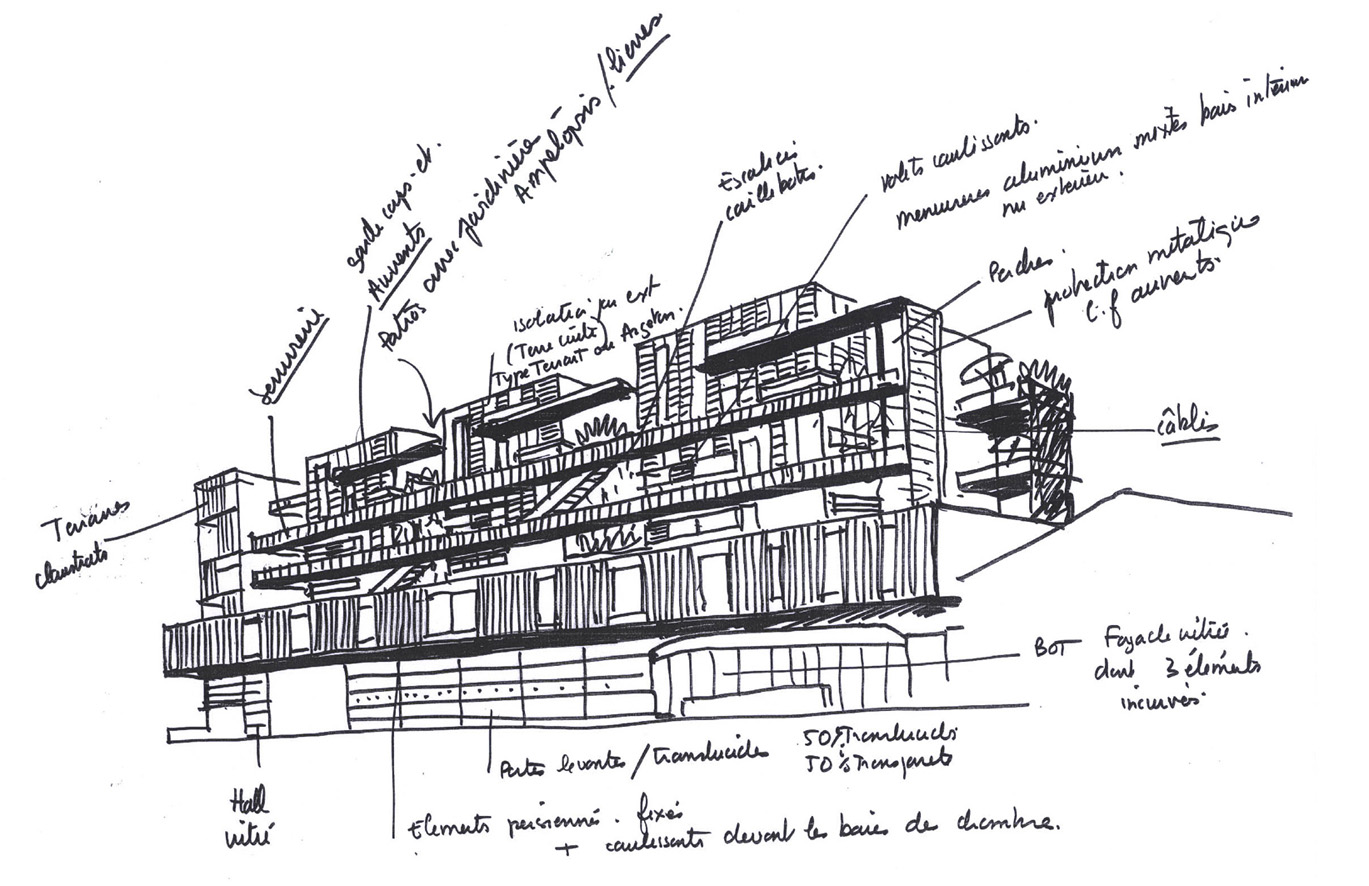 Serrurerie
garde corps et
Auvents
Patios avec jardinière
Ampelopsis / lierres
isolation par ext
(Terre cuite)
Type Terreart ou Argeton.
Escaliers
caillebotis.
volets coulissants.
menuiseries aluminium mixtes bois intérieur
nu extérieur.
Perches.
protection métalique
c.f auvents.
câbles
Terrasses
claustrats
BOT Façade vitrée.
dont 3 éléments
incurvés
Portes levantes / translucides
50% Translucide
50% Transparets
Hall
vitré
Elements persiennés. fixés
+ coulissants devant les baies de chambre.